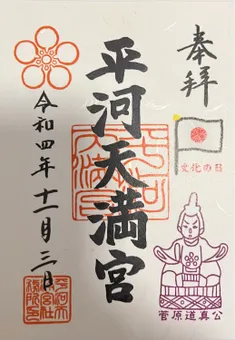 奉拝
文化の日
平河天満宮
令和四年十一月三日
菅原道真公